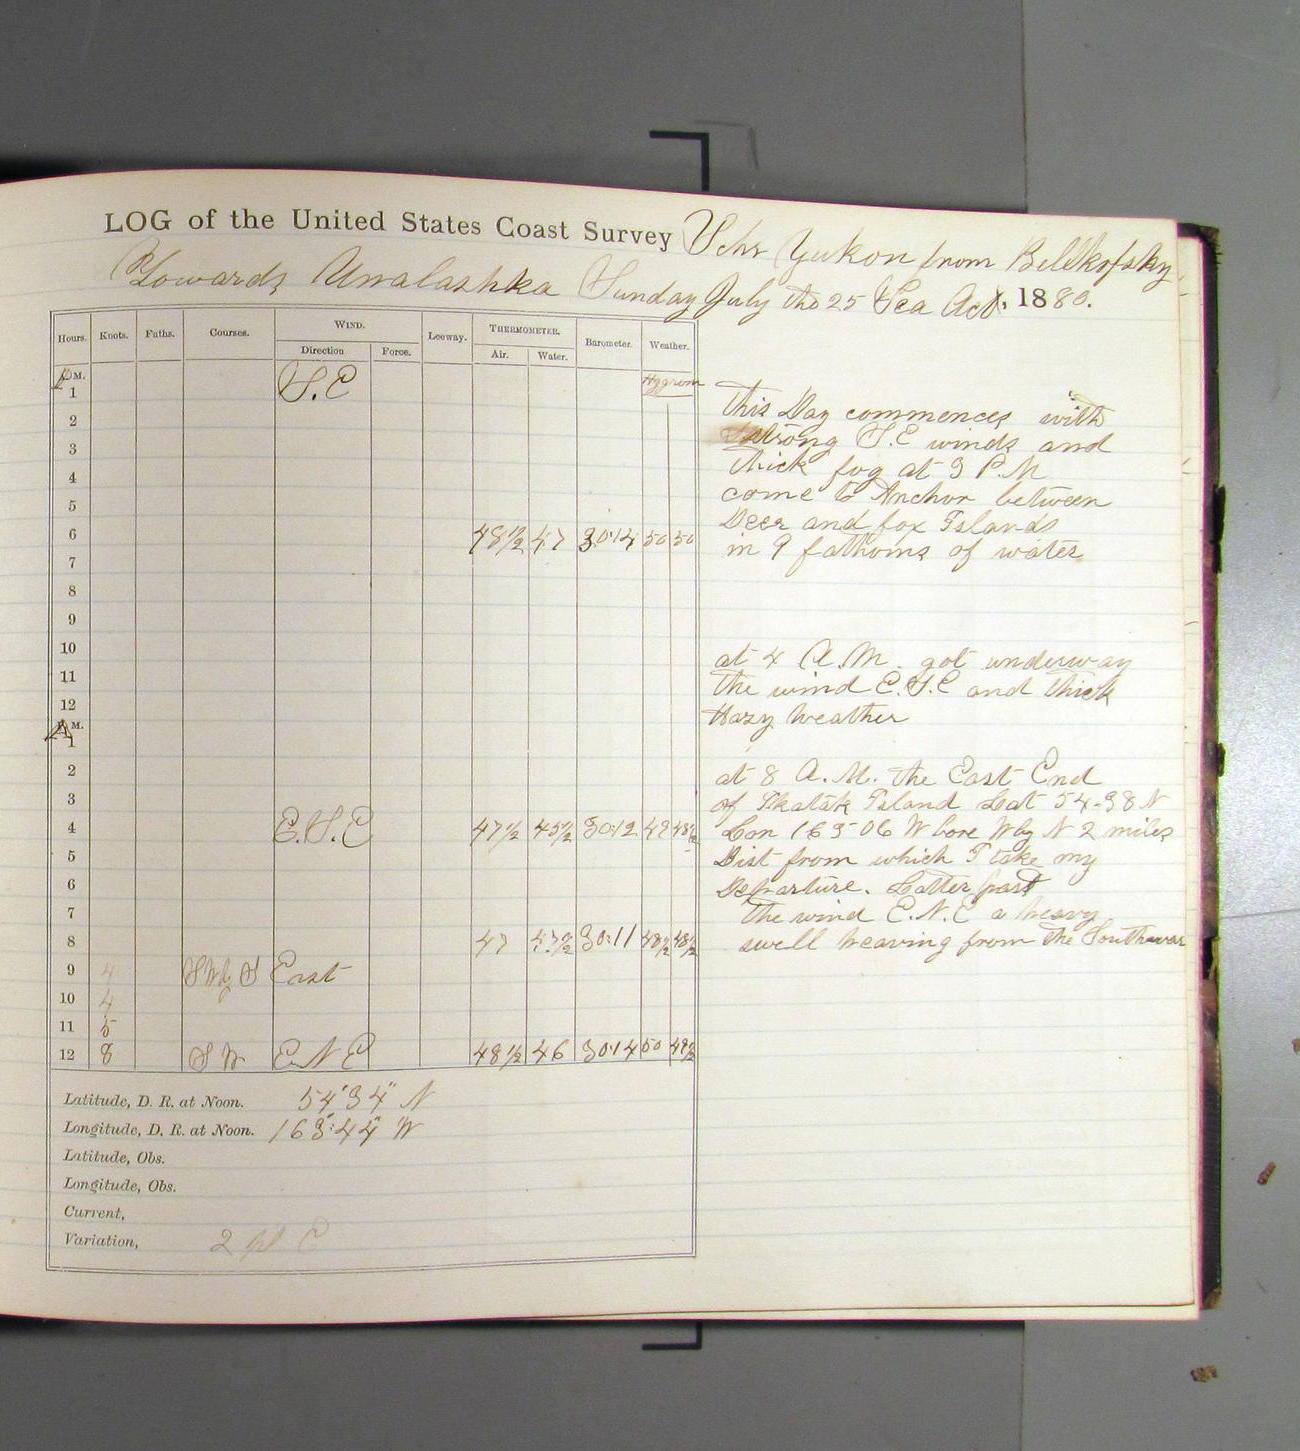 LOG of the United States Coast Survey Schr Yukon from Bellkofsky
Towards Unalashka Sunday July the 25 Sea Act. 1880.
Hours. Knots. Faths. Courses. WIND. Leeway. THERMOMETER. Barometer. Weather.
Direction Force. Air. Water.
P M. Hygrom
1 S.E
2
3
4
5
6 48½ 47 30.14 50 50
7
8
9
10
11
12
A M.
1
2
3
4 E.S.E 47½ 45½ 30.12 49 48½
5
6
7
8 47 47½ 30.11 48½ 48½
9 4 SW by S East
10 4
11 5
12 8 S W E N E 48½ 46 30.14 50 49½
Latitude, D. R. at Noon. 54°34" N
Longitude, D. R. at Noon. 163:44" W
Latitude, Obs.
Longitude, Obs.
Current,
Variation, 2 pt E
This Day commences with
strong S.E winds and
thick fog at 3 P.M
come to Anchor between
Deer and fox Islands
in 9 fathoms of water
at 4 A.M. got underway
the wind E.S.E and thick
Hazy Weather
at 8 A.M. the East End
of Island Lat 54-38 N
Lon 163-06 W bore W by N 2 miles
Dist from which I take my
Departure. Latter part
the wind E.N.E a heavy
swell heaving from the Southward